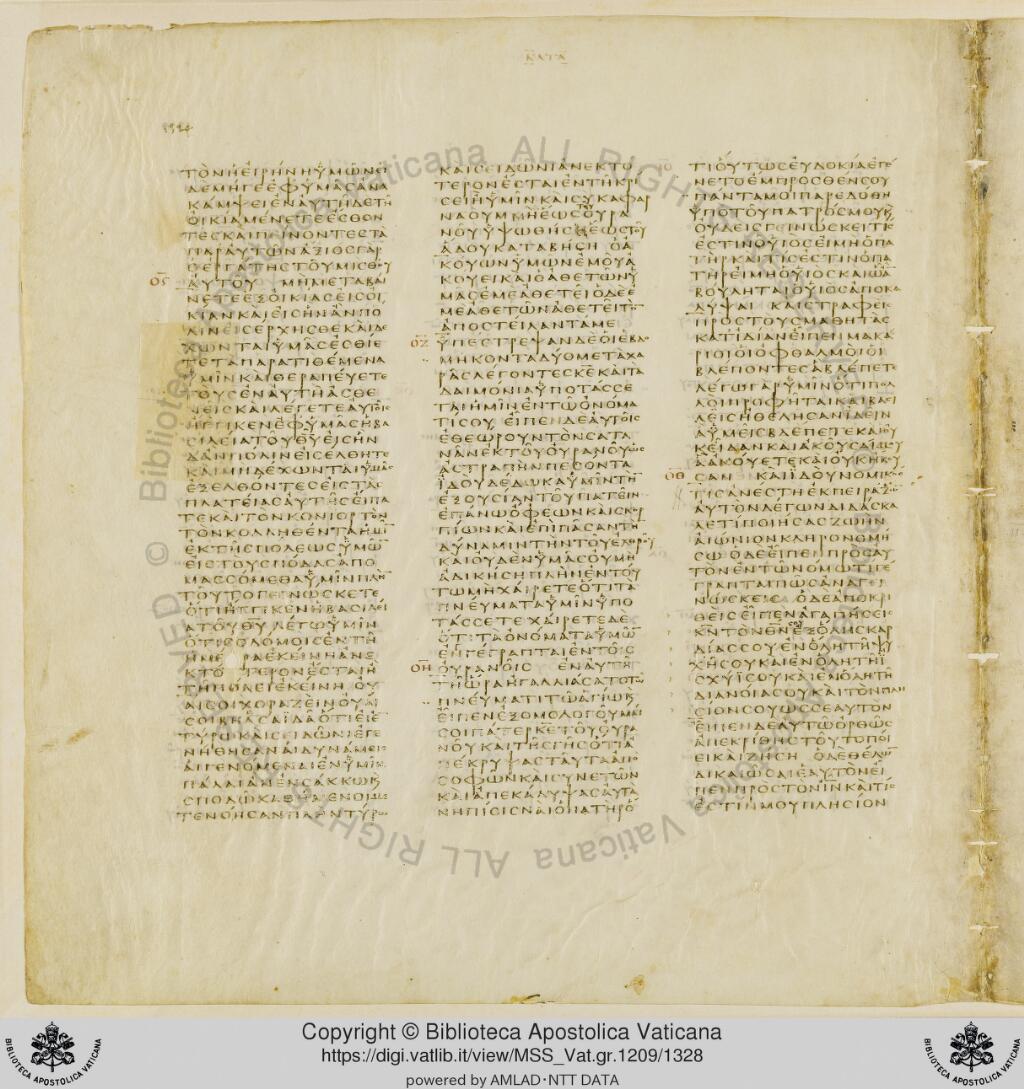 ΚΑΤΑ
1324
ΤΟΝΗΕΙΡΗΝΗΥΜΩΝΕΙ
ΔΕΜΗΓΕΕΦΥΜΑϹΑΝΑ
ΚΑΜΨΕΙΕΝΑΥΤΗΔΕΤΗ
ΟΙΚΙΑΜΕΝΕΤΕΕϹΘΟΝ
ΤΕϹΚΑΙΠΕΙΝΟΝΤΕϹΤΑ
ΠΑΡΑΥΤΩΝΑΞΙΟϹΓΑΡ
ΟΕΡΓΑΤΗϹΤΟΥΜΙϹΘΟΥ
Ο̅Ϛ̅ ΑΥΤΟΥ ΜΗΜΕΤΑΒΑΙ
ΝΕΤΕΕΞΟΙΚΙΑϹΕΙϹΟΙ
ΚΙΑΝΚΑΙΕΙϹΗΝΑΝΠΟ
ΛΙΝΕΙϹΕΡΧΗϹΘΕΚΑΙΔΕ
ΧΩΝΤΑΙΥΜΑϹΕϹΘΙΕ
ΤΕΤΑΠΑΡΑΤΙΘΕΜΕΝΑ
ΥΜΙΝΚΑΙΘΕΡΑΠΕΥΕΤΕ
ΤΟΥϹΕΝΑΥΤΗΑϹΘΕ
ΝΕΙϹΚΑΙΛΕΓΕΤΕΑΥΤΟΙϹ
ΗΓΓΙΚΕΝΕΦΥΜΑϹΗΒΑ
ϹΙΛΕΙΑΤΟΥΘ̅Υ̅ΕΙϹΗΝ
ΔΑΝΠΟΛΙΝΕΙϹΕΛΘΗΤΕ
ΚΑΙΜΗΔΕΧΩΝΤΑΙΥΜΑϹ
ΕΞΕΛΘΟΝΤΕϹΕΙϹΤΑϹ
ΠΛΑΤΕΙΑϹΑΥΤΗϹΕΙΠΑ
ΤΕΚΑΙΤΟΝΚΟΝΙΟΡΤΟΝ
ΤΟΝΚΟΛΛΗΘΕΝΤΑΗΜΙ̅
ΕΚΤΗϹΠΟΛΕΩϹΥΜΩ̅
ΕΙϹΤΟΥϹΠΟΔΑϹΑΠΟ
ΜΑϹϹΟΜΕΘΑΥΜΙΝΠΛΗ̅
ΤΟΥΤΟΓΕΙΝΩϹΚΕΤΕ
ΟΤΙΗΓΓΙΚΕΝΗΒΑϹΙΛΕΙ
ΑΤΟΥΘ̅Υ̅ΛΕΓΩΥΜΙΝ
ΟΤΙϹΟΔΟΜΟΙϹΕΝΤΗ
ΗΜΕΡΑΕΚΕΙΝΗΑΝΕ
ΚΤΟΤΕΡΟΝΕϹΤΑΙΗ
ΤΗΠΟΛΕΙΕΚΕΙΝΗ ΟΥ
ΑΙϹΟΙΧΟΡΑΖΕΙΝΟΥΑΙ
ϹΟΙΒΗΔϹΑΙΔΑΟΤΙΕΙΕ̅
ΤΥΡΩΚΑΙϹΕΙΔΩΝΙΕΓΕ
ΝΗΘΗϹΑΝΑΙΔΥΝΑΜΕΙϹ
ΑΙΓΕΝΟΜΕΝΑΙΕΝΥΜΙΝ
ΠΑΛΑΙΑΝΕΝϹΑΚΚΩΚ
ϹΠΟΔΩΚΑΘΗΜΕΝΟΙΜΕ
ΤΕΝΟΗϹΑΝΠΛΗΝΤΥΡΩ
ΚΑΙϹΕΙΔΩΝΙΑΝΕΚΤΟ
ΤΕΡΟΝΕϹΤΑΙΕΝΤΗΚΡΙ
ϹΕΙΗΥΜΙΝΚΑΙϹΥΚΑΦΑΡ
ΝΑΟΥΜΜΗΕΩϹΟΥΡΑ
ΝΟΥΥΨΩΘΗϹΗΕΩϹΤΟΥ
ΑΔΟΥΚΑΤΑΒΗϹΗ ΟΑ
ΚΟΥΩΝΥΜΩΝΕΜΟΥΑ
ΚΟΥΕΙΚΑΙΟΑΘΕΤΩΝΥ
ΜΑϹΕΜΕΑΘΕΤΕΙΟΔΕΕ
ΜΕΑΘΕΤΩΝΑΘΕΤΕΙΤΟ̅
ΑΠΟϹΤΕΙΛΑΝΤΑΜΕ
Ο̅Ζ̅ ΥΠΕϹΤΡΕΨΑΝΔΕΟΙΕΒΔΟ
ΜΗΚΟΝΤΑΔΥΟΜΕΤΑΧΑ
ΡΑϹΛΕΓΟΝΤΕϹΚ̅Ε̅ΚΑΙΤΑ
ΔΑΙΜΟΝΙΑΥΠΟΤΑϹϹΕ
ΤΑΙΗΜΙΝΕΝΤΩΟΝΟΜΑ
ΤΙϹΟΥ ΕΙΠΕΝΔΕΑΥΤΟΙϹ
ΕΘΕΩΡΟΥΝΤΟΝϹΑΤΑ
ΝΑΝΕΚΤΟΥΟΥΡΑΝΟΥΩϹ
ΑϹΤΡΑΠΗΝΠΕϹΟΝΤΑ
ΙΔΟΥΔΕΔΩΚΑΥΜΙΝΤΗ̅
ΕΞΟΥϹΙΑΝΤΟΥΠΑΤΕΙΝ
ΕΠΑΝΩΟΦΕΩΝΚΑΙϹΚΟΡ
ΠΙΩΝΚΑΙΕΠΙΠΑϹΑΝΤΗ̅
ΔΥΝΑΜΙΝΤΗΝΤΟΥΕΧΘΡΟΥ
ΚΑΙΟΥΔΕΝΥΜΑϹΟΥΜΗ
ΑΔΙΚΗϹΗΠΛΗΝΕΝΤΟΥ
ΤΩΜΗΧΑΙΡΕΤΕΟΤΙΤΑ
ΠΝΕΥΜΑΤΑΥΜΙΝΥΠΟ
ΤΑϹϹΕΤΕΧΑΙΡΕΤΕΔΕ
ΟΤΙΤΑΟΝΟΜΑΤΑΥΜΩ̅
ΕΝΓΕΓΡΑΠΤΑΙΕΝΤΟΙϹ
Ο̅Η̅ ΟΥΡΑΝΟΙϹ ΕΝΑΥΤΗ
ΤΗΩΡΑΗΓΑΛΛΙΑϹΑΤΟΤΩ
ΠΝΕΥΜΑΤΙΤΩΑΓΙΩΚ
ΕΙΠΕΝΕΞΟΜΟΛΟΓΟΥΜΑΙ
ϹΟΙΠΑΤΕΡΚ̅Ε̅ΤΟΥΟΥΡΑ
ΝΟΥΚΑΙΤΗϹΓΗϹΟΤΙΑ
ΠΕΚΡΥΨΑϹΤΑΥΤΑΑΠΟ
ϹΟΦΩΝΚΑΙϹΥΝΕΤΩΝ
ΚΑΙΑΠΕΚΑΛΥΨΑϹΑΥΤΑ
ΝΗΠΙΟΙϹΝΑΙΟΠΑΤΗΡΟ
ΤΙΟΥΤΩϹΕΥΔΟΚΙΑΕΓΕ
ΝΕΤΟΕΜΠΡΟϹΘΕΝϹΟΥ
ΠΑΝΤΑΜΟΙΠΑΡΕΔΟΘΗ
ΥΠΟΤΟΥΠΑΤΡΟϹΜΟΥΚ
ΟΥΔΕΙϹΓΕΙΝΩϹΚΕΙΤΙϹ
ΕϹΤΙΝΟΥΙΟϹΕΙΜΗΟΠΑ
ΤΗΡΚΑΙΤΙϹΕϹΤΙΝΟΠΑ
ΤΗΡΕΙΜΗΟΥΙΟϹΚΑΙΩΑ̅
ΒΟΥΛΗΤΑΙΟΥΙΟϹΑΠΟΚΑ
ΛΥΨΑΙ ΚΑΙϹΤΡΑΦΕΙϹ
ΠΡΟϹΤΟΥϹΜΑΘΗΤΑϹ
ΚΑΤΙΔΙΑΝΕΙΠΕΝΜΑΚΑ
ΡΙΟΙΟΙΟΦΘΑΛΜΟΙΟΙ
ΒΛΕΠΟΝΤΕϹΑΒΛΕΠΕΤΕ
ΛΕΓΩΓΑΡΥΜΙΝΟΤΙΠΟΛ
ΛΟΙΠΡΟΦΗΤΑΙΚΑΙΒΑϹΙ
ΛΕΙϹΗΘΕΛΗϹΑΝΙΔΕΙΝ
ΑΥΜΕΙϹΒΛΕΠΕΤΕΚΑΙΟΥ
ΚΕΙΔΑΝΚΑΙΑΚΟΥϹΑΙΜΟΥ
ΑΑΚΟΥΕΤΕΚΑΙΟΥΚΗΚΟΥ
Ο̅Θ̅ ϹΑΝ ΚΑΙΙΔΟΥΝΟΜΙΚΟϹ
ΤΙϹΑΝΕϹΤΗΕΚΠΕΙΡΑΖΩ̅
ΑΥΤΟΝΛΕΓΩΝΔΙΔΑϹΚΑ
ΛΕΤΙΠΟΙΗϹΑϹΖΩΗΝ
ΑΙΩΝΙΟΝΚΛΗΡΟΝΟΜΗ
ϹΩ ΟΔΕΕΙΠΕΝΠΡΟϹΑΥ
ΤΟΝΕΝΤΩΝΟΜΩΤΙΓΕ
ΓΡΑΠΤΑΙΠΩϹΑΝΑΓΕΙ
ΝΩϹΚΕΙϹ ΟΔΕΑΠΟΚΡΙ
ΘΕΙϹΕΙΠΕΝΑΓΑΠΗϹΕΙϹ
Κ̅Ν̅ΤΟΝΘ̅Ν̅ΕΞΟΛΗϹΚΑΡ
ΔΙΑϹϹΟΥΕΝΟΛΗΤΗΨΥ
ΧΗϹΟΥΚΑΙΕΝΟΛΗΤΗΙ
ϹΧΥΙϹΟΥΚΑΙΕΝΟΛΗΤΗ
ΔΙΑΝΟΙΑϹΟΥΚΑΙΤΟΝΠΛΗ
ϹΙΟΝϹΟΥΩϹϹΕΑΥΤΟΝ
ΕΙΠΕΝΔΕΑΥΤΩΟΡΘΩϹ
ΑΠΕΚΡΙΘΗϹΤΟΥΤΟΠΟΙ
ΕΙΚΑΙΖΗϹΗ ΟΔΕΘΕΛΩ̅
ΔΙΚΑΙΩϹΑΙΕΑΥΤΟΝΕΙ
ΠΕΝΠΡΟϹΤΟΝΙ̅Ν̅ΚΑΙΤΙϹ
ΕϹΤΙΝΜΟΥΠΛΗϹΙΟΝ
© Biblioteca Apostolica Vaticana ALL RIGHTS RESERVED
BIBLIOTECA APOSTOLICA VATICANA
Copyright © Biblioteca Apostolica Vaticana
https://digi.vatlib.it/view/MSS_Vat.gr.1209/1328
powered by AMLAD·NTT DATA
BIBLIOTECA APOSTOLICA VATICANA